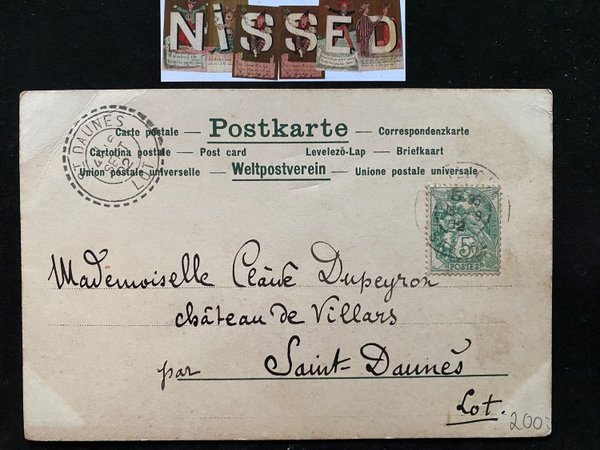 NiSSED
Carte postale — Postkarte — Correspondenzkarte
Cartolina postale — Post card — Levelező-Lap — Briefkaart
Union postale universelle — Weltpostverein — Unione postale universale
ST DAUNÈS
LOT
5
POSTES
Mademoiselle Claire Dupeyron
château de Villars
par Saint-Daunès
Lot.
200